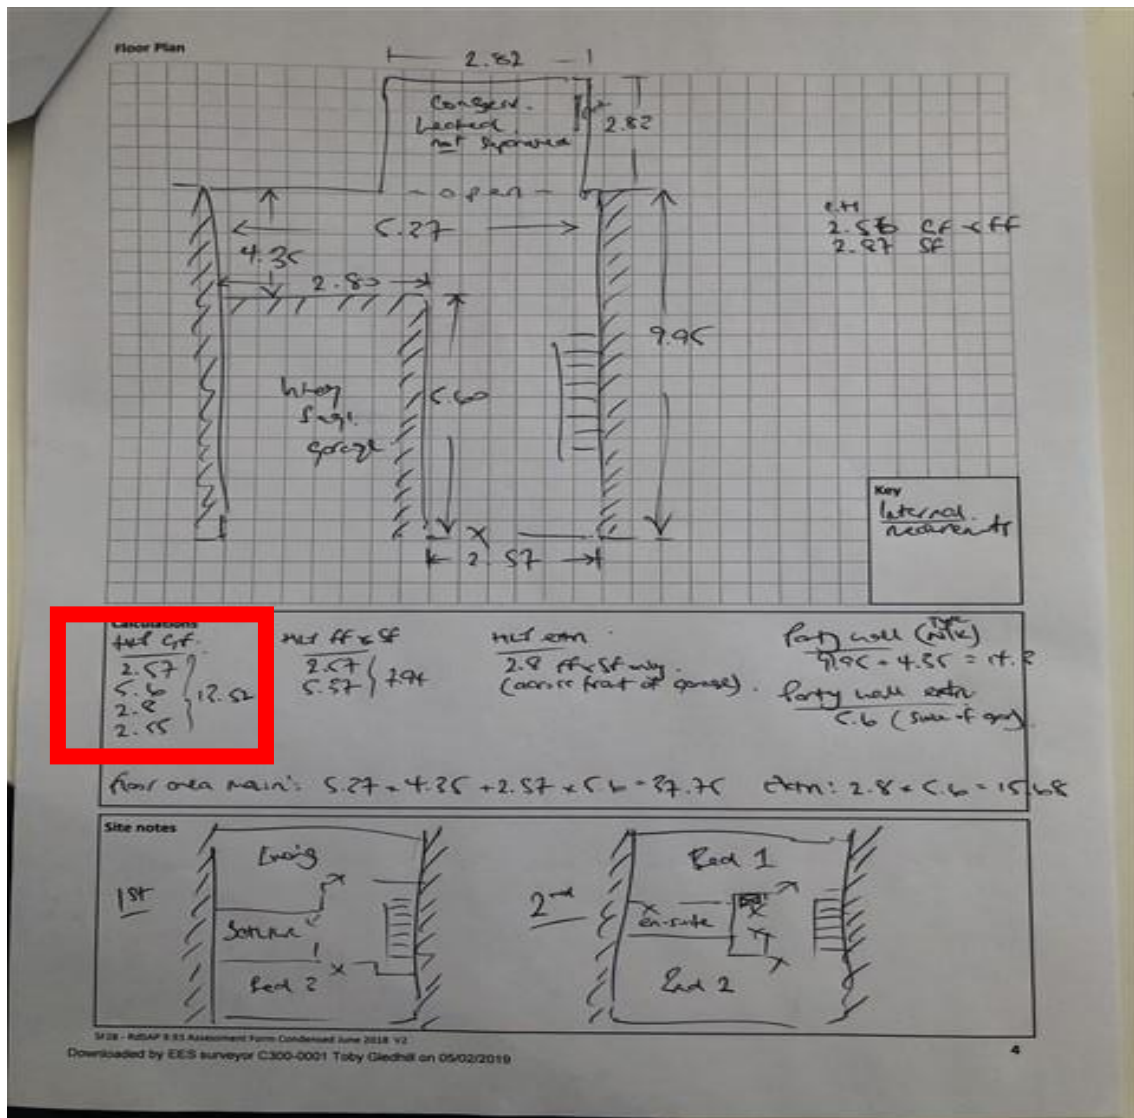 Floor Plan
2.82
Conserv.
heated
not separated
2.82
- open -
5.27
4.35
2.80
2.87 SF
9.95
5.60
garage
Key
Internal
2.57
Calculations
HLP GF.
2.57
5.6
2.8
2.55
13.52
HLP FF & SF
2.57
5.37
7.94
HLP extn
2.8 FF & SF only.
(across front of garage).
Party wall
9.95 + 4.35 = 14.3
Party wall extn
5.6 (side of gar)
floor area main: 5.27 × 4.35 + 2.57 × 5.6 = 37.75
extn: 2.8 × 5.6 = 15.68
Site notes
1st
Living
Bed 2
2nd
Bed 1
en-suite
Bed 2
SF28 - RdSAP 9.93 Assessment Form Condensed June 2018 V2
4
Downloaded by EES surveyor C300-0001 Toby Gledhill on 05/02/2019